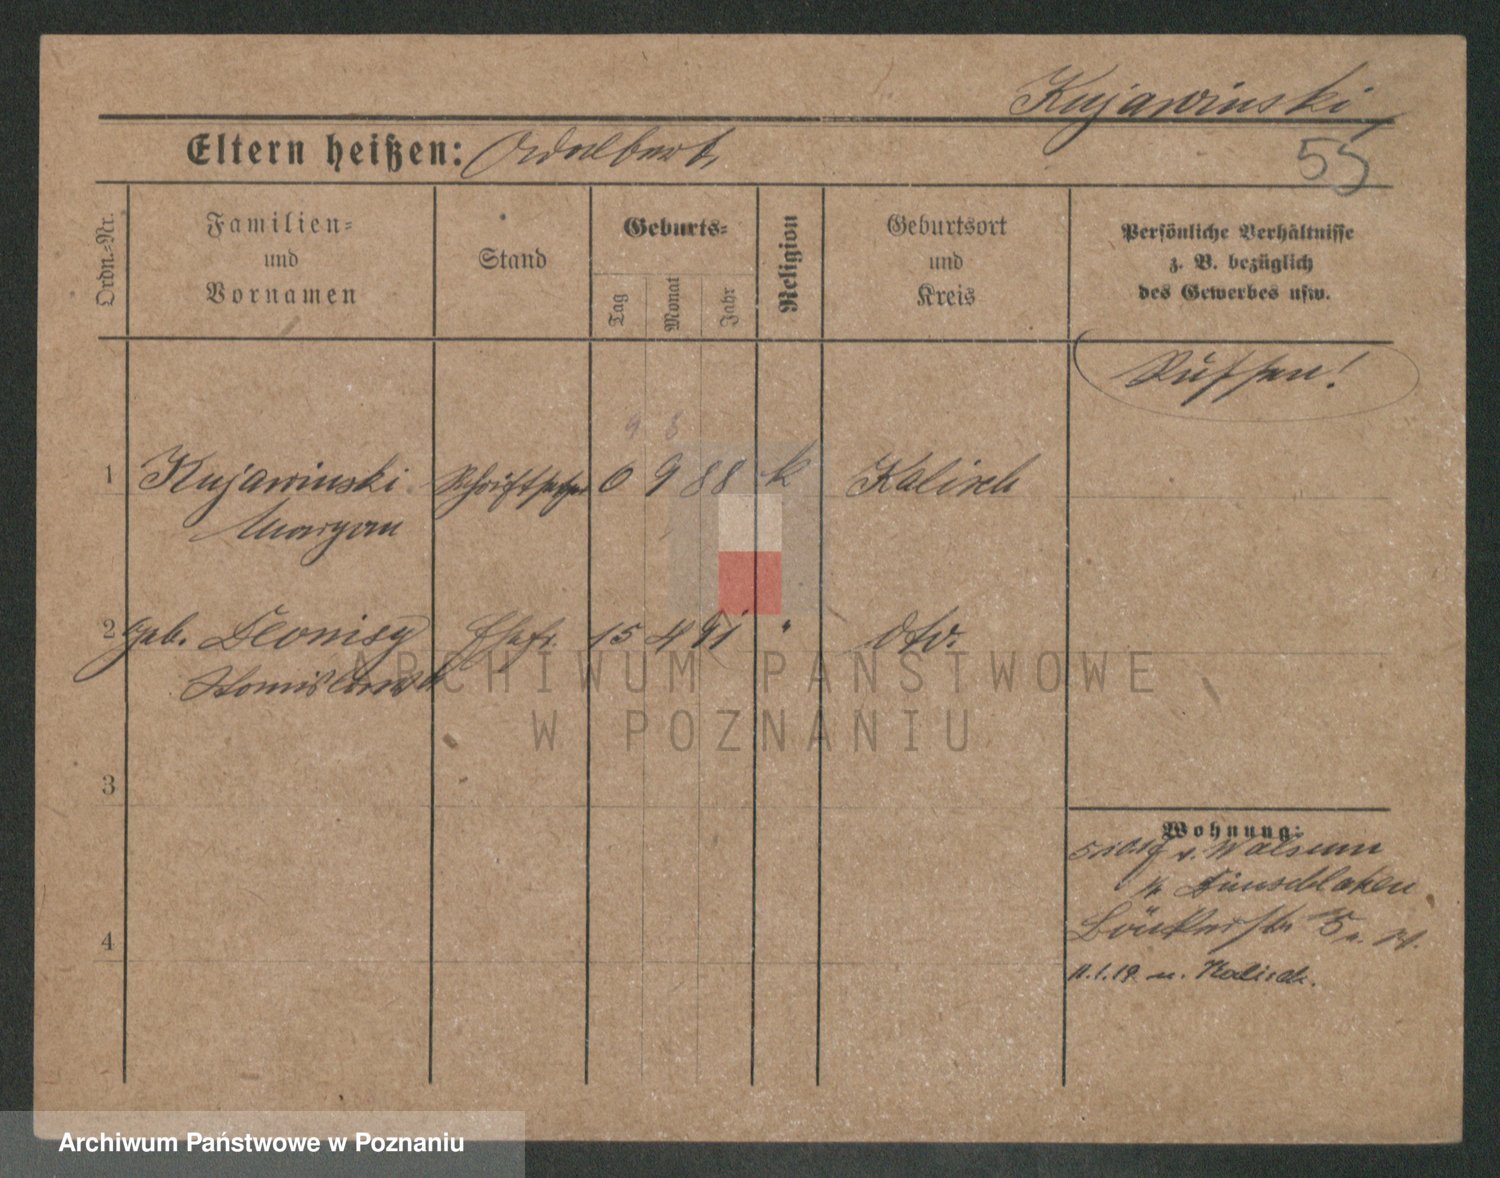 Kujawinski
Eltern heißen: Adalbert
55
Ordn.=Nr.
Familien=
und
Vornamen
Stand
Geburts=
Tag
Monat
Jahr
Religion
Geburtsort
und
Kreis
Persönliche Verhältnisse
z. B. bezüglich
des Gewerbes usw.
Russen!
9 8
1 Kujawinski Schriftsetzer 6 9 88 k Kalisch
Maryan
2 geb. Ehefr. 15 4 91 " dto.
Stanislawa
ARCHIWUM PAŃSTWOWE
W POZNANIU
3
4
Wohnung:
v. Walsum
Dinslaken
5
11.1.19 n. Kalisch.
Archiwum Państwowe w Poznaniu